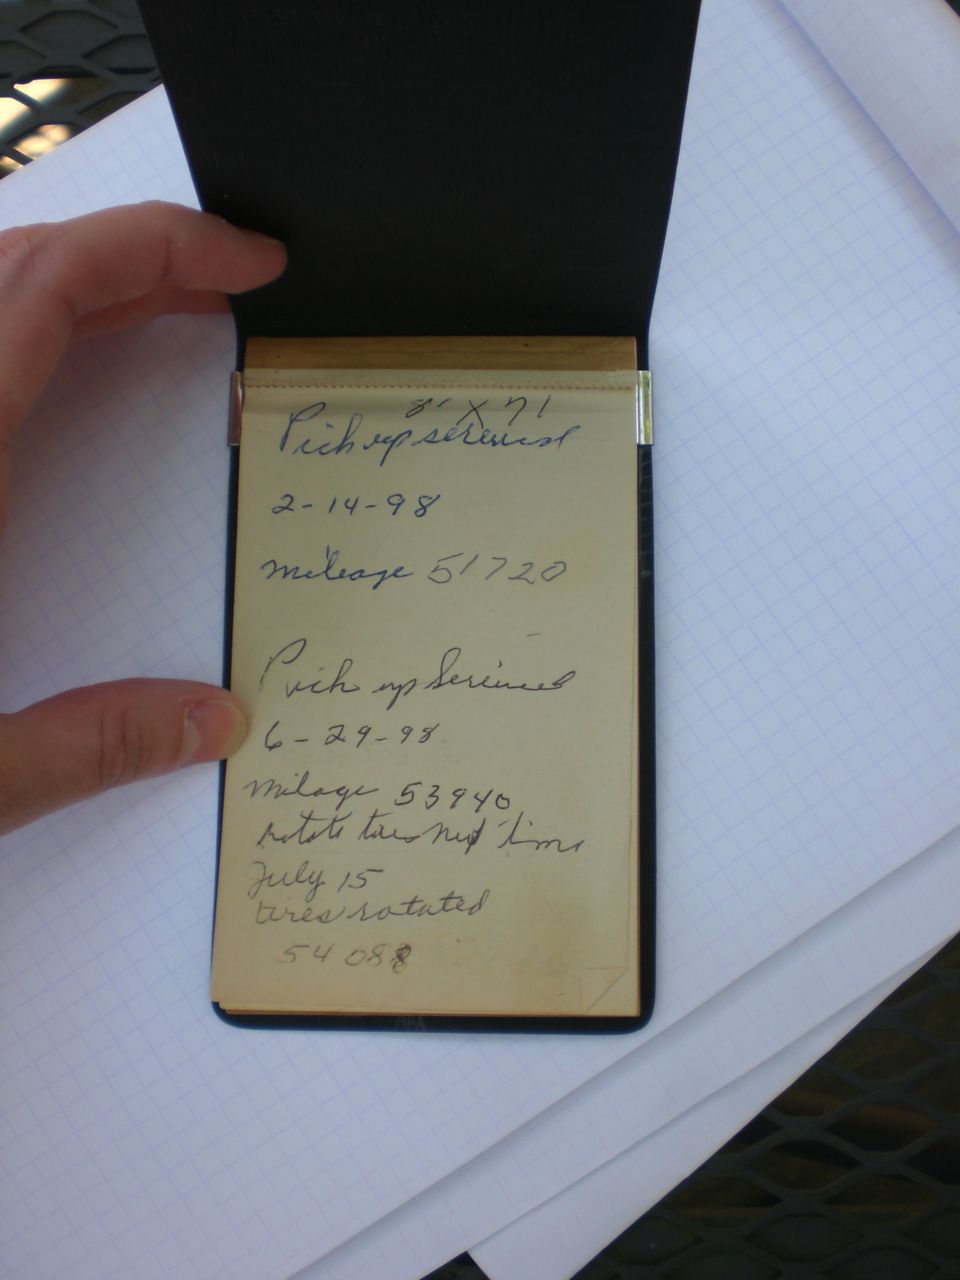 8' X 7'
Pick up serviced
2-14-98
mileage 51720
Pick up Serviced
6-29-98
milage 53940
rotate tires next time
July 15
tires rotated
54088